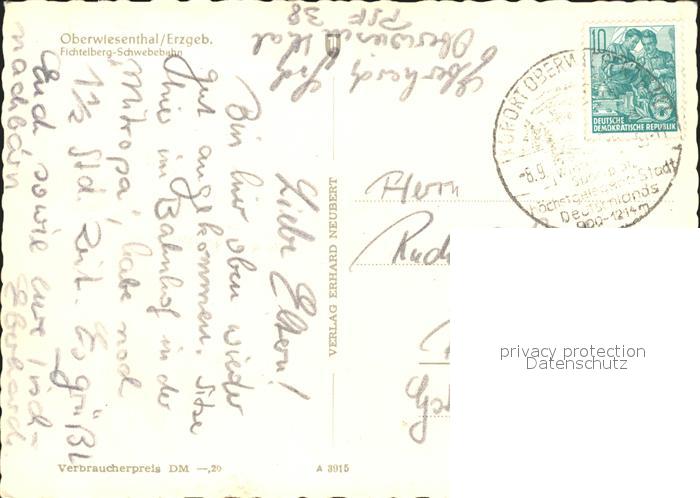 Oberwiesenthal/Erzgeb.
Fichtelberg-Schwebebahn
Eberhard
Oberwiesenthal
PSF 38
Liebe Eltern!
Bin hier oben wieder
gut angekommen. Sitze
hier im Bahnhof in der
"Mitropa", habe noch
1½ Std. Zeit. Es grüßt
Euch sowie eure
nachbarn Eberhard
VERLAG ERHARD NEUBERT
Herrn
10
DEUTSCHE
DEMOKRATISCHE REPUBLIK
KURORT OBERW
-6.9.
Höchstgelegene Stadt
Deutschlands
900-1214m
privacy protection
Datenschutz
Verbraucherpreis DM —,20
A 3915